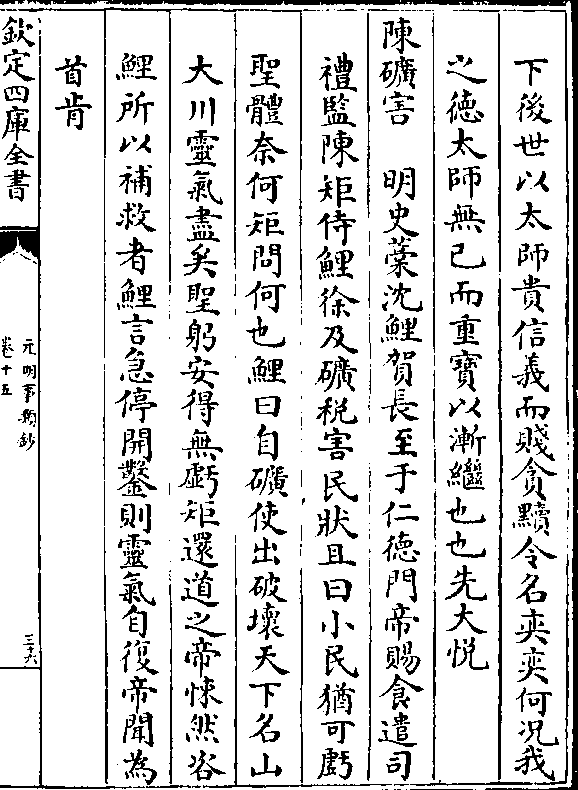 下後世以太師貴信義而賤貪黷令名奕奕何况我
之德太師無已而重寳以漸繼也也先大悦
陳礦害　明史藳沈鯉賀長至于仁德門帝賜食遣司
禮監陳矩侍鯉徐及礦税害民狀且曰小民猶可虧
聖體奈何矩問何也鯉曰自礦使出破壞天下名山
大川靈氣盡矣聖躬安得無虧矩還道之帝悚然咨
鯉所以補救者鯉言急停開鑿則靈氣自復帝聞為
首肯
欽定四庫全書
元明事類鈔
卷十五
三十六